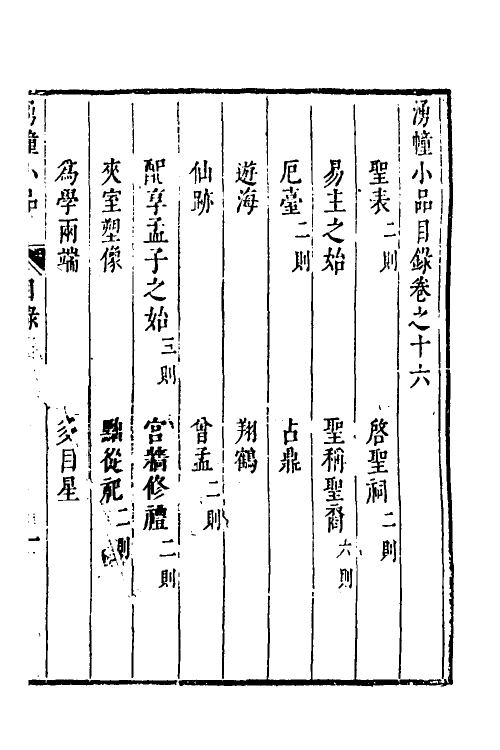 湧幢小品目錄卷之十六
聖表二則 啓聖祠二則
易主之始 聖稱聖裔六則
厄臺二則 占鼎
遊海 翔鶴
仙跡 曾孟二則
配享孟子之始三則 宮墻修禮二則
夾室塑像 黜從祀二則
爲學兩端 多目星
湧幢小品 目錄